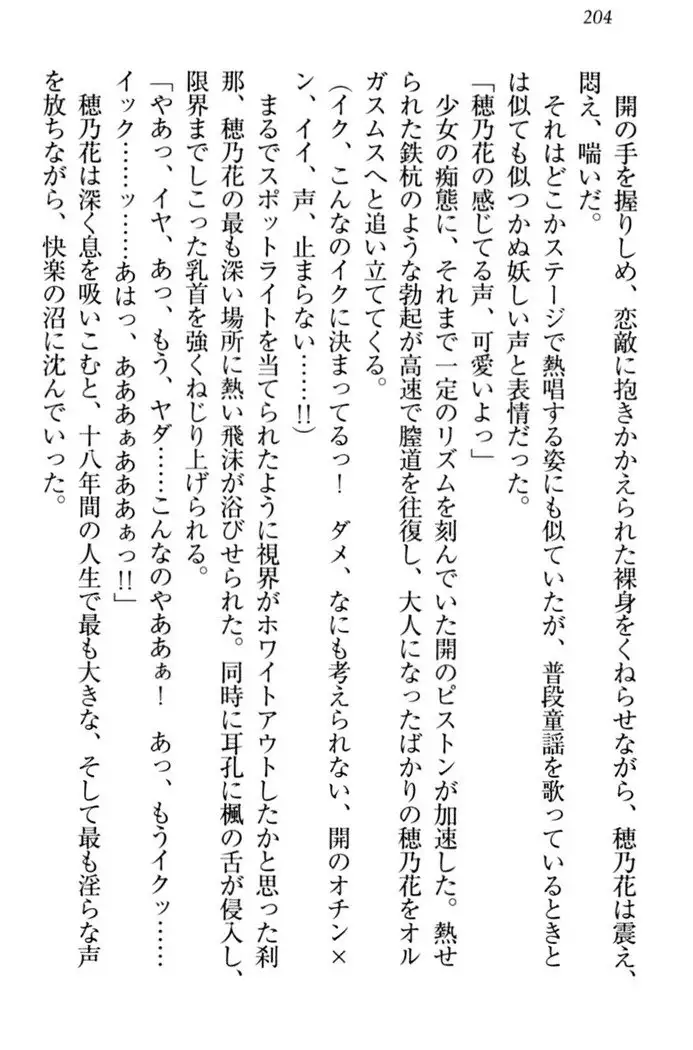 204
開の手を握りしめ、恋敵に抱きかかえられた裸身をくねらせながら、穂乃花は震え、
悶え、喘いだ。
それはどこかステージで熱唱する姿にも似ていたが、普段童謡を歌っているときと
は似ても似つかぬ妖しい声と表情だった。
「穂乃花の感じてる声、可愛いよっ」
少女の痴態に、それまで一定のリズムを刻んでいた開のピストンが加速した。熱せ
られた鉄杭のような勃起が高速で膣道を往復し、大人になったばかりの穂乃花をオル
ガスムスへと追い立ててくる。
(イク、こんなのイクに決まってるっ！　ダメ、なにも考えられない、開のオチン×
ン、イイ、声、止まらない……!!)
まるでスポットライトを当てられたように視界がホワイトアウトしたかと思った刹
那、穂乃花の最も深い場所に熱い飛沫が浴びせられた。同時に耳孔に楓の舌が侵入し、
限界までしこった乳首を強くねじり上げられる。
「やあっ、イヤ、あっ、もう、ヤダ……こんなのやああぁ！　あっ、もうイクッ……
イック……ッ……あはっ、あああぁあああぁっ!!」
穂乃花は深く息を吸いこむと、十八年間の人生で最も大きな、そして最も淫らな声
を放ちながら、快楽の沼に沈んでいった。